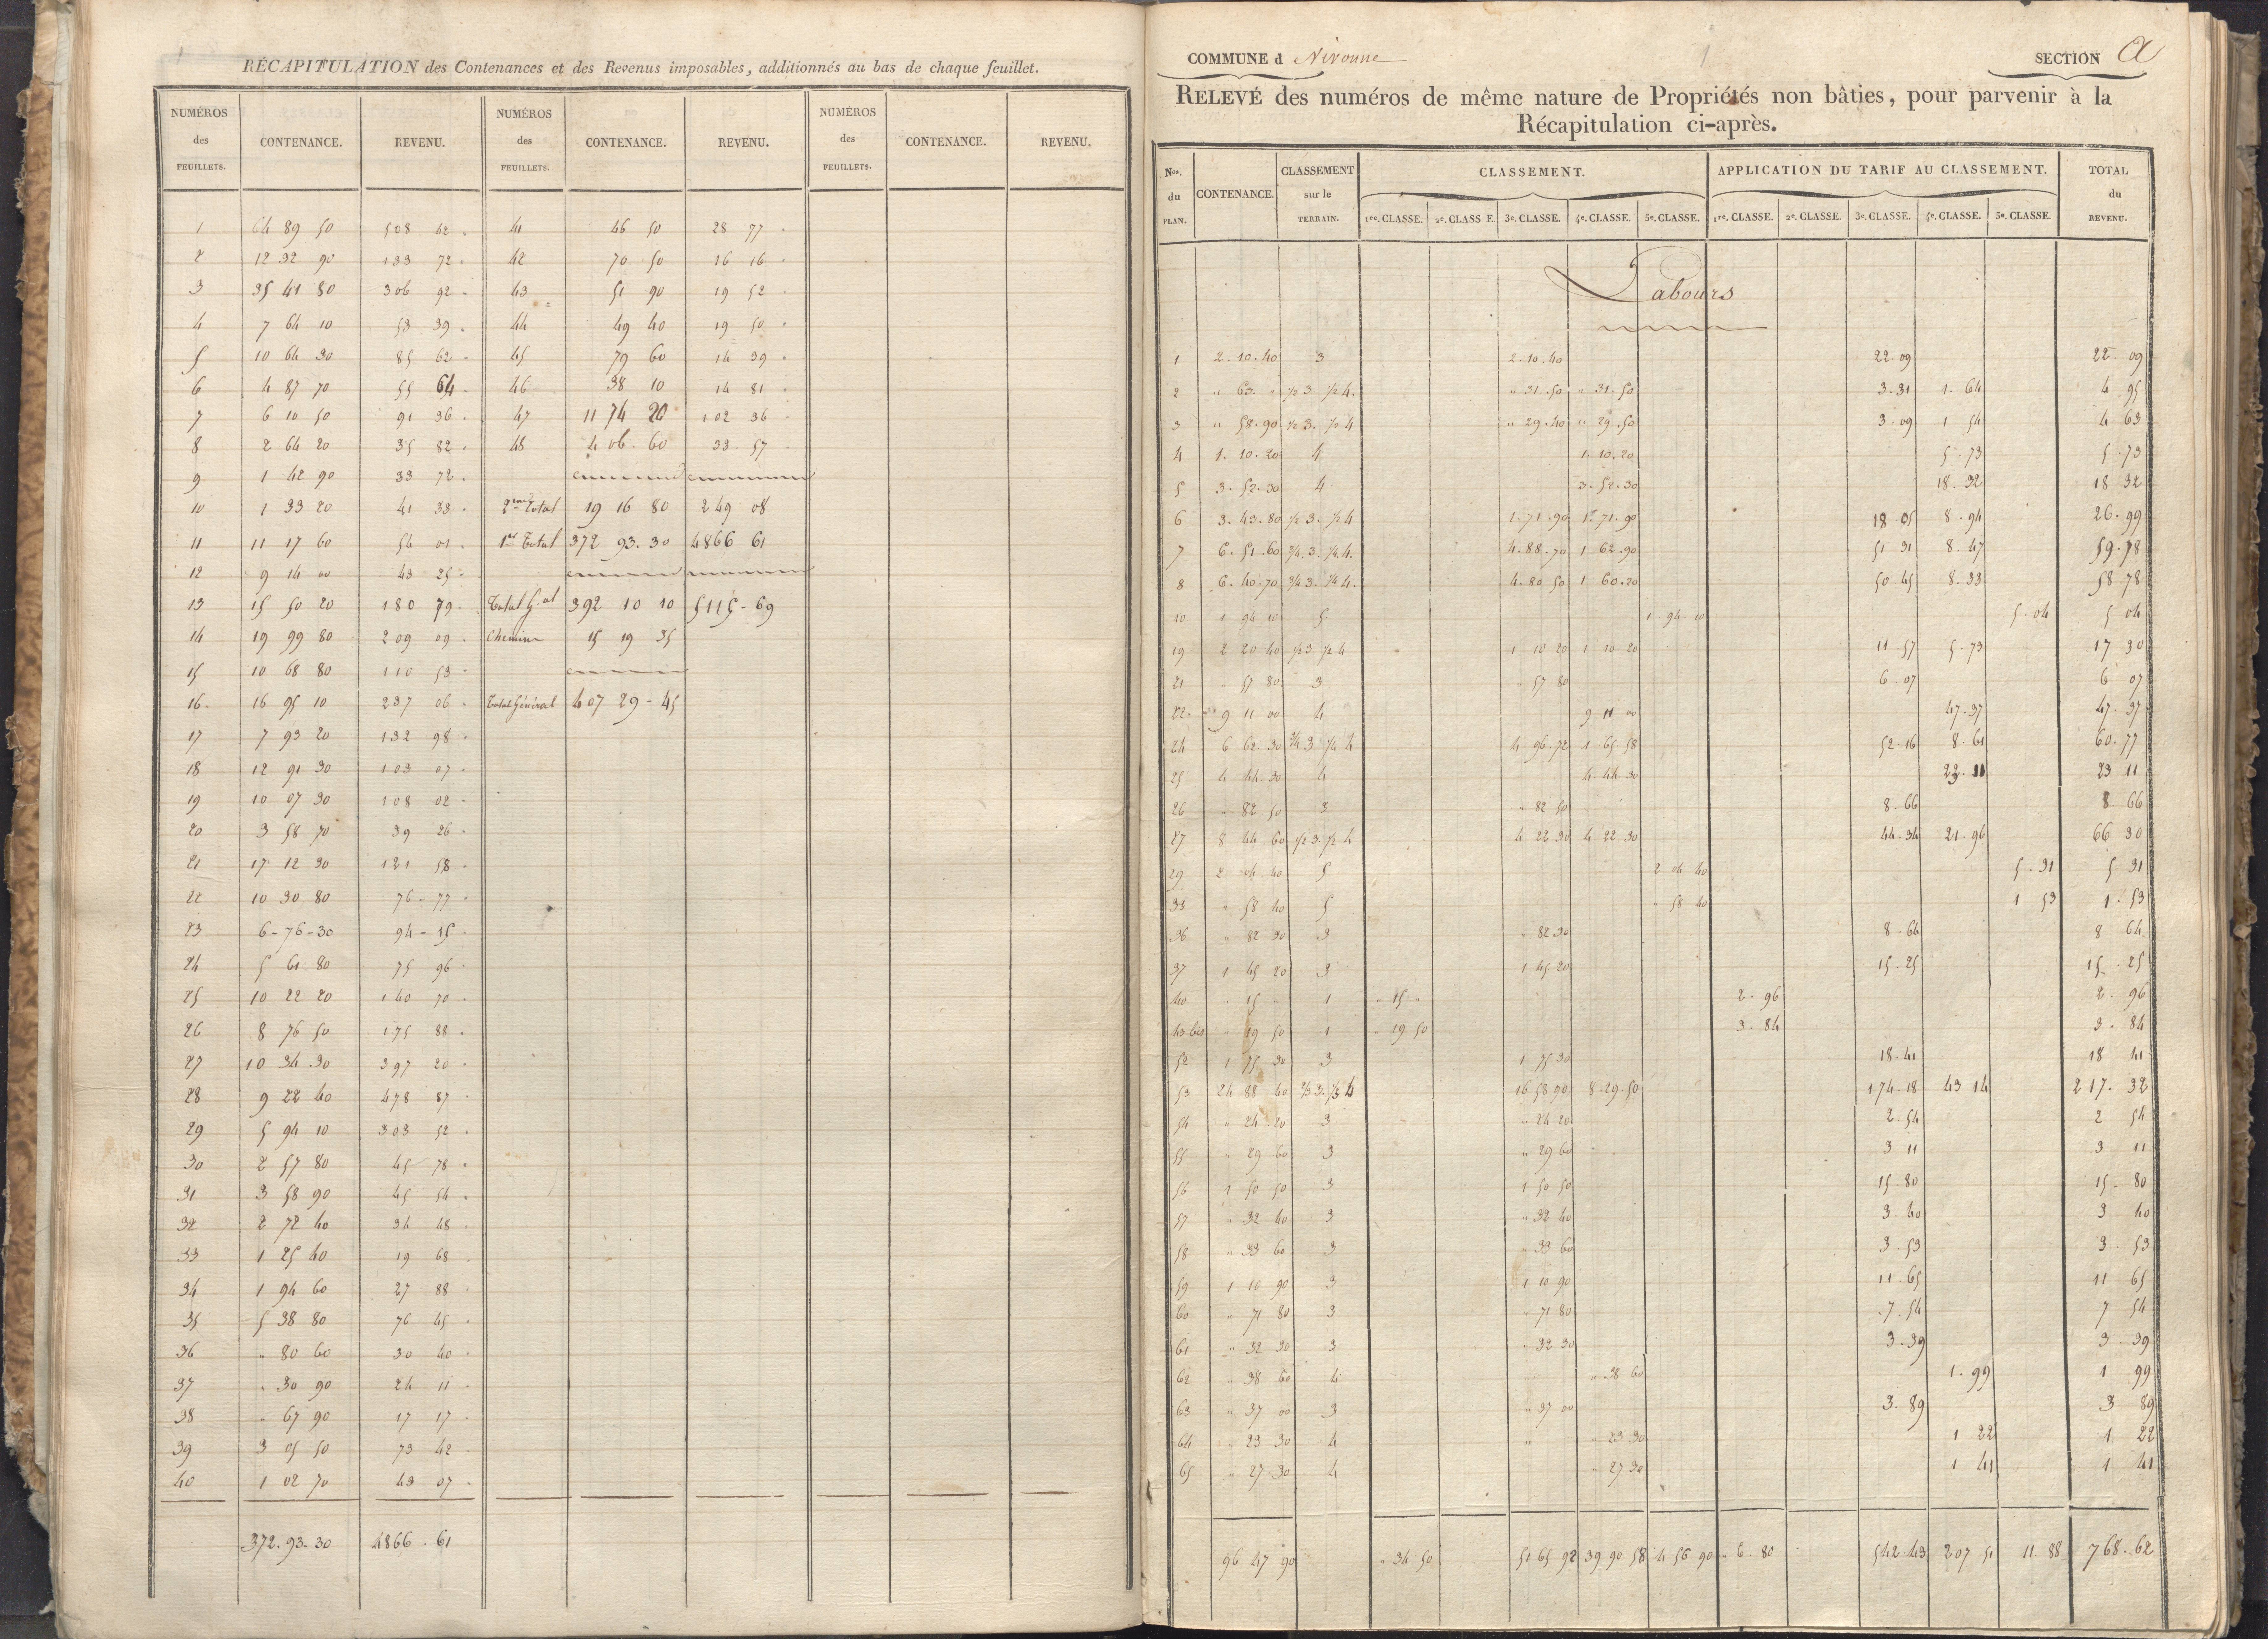 RÉCAPITULATION des Contenances et des Revenus imposables, additionnés au bas de chaque feuillet.
NUMÉROS des FEUILLETS. CONTENANCE. REVENU. NUMÉROS des FEUILLETS. CONTENANCE. REVENU. NUMÉROS des FEUILLETS. CONTENANCE. REVENU.
1 64 89 50 508 42 41 46 50 28 77
2 12 32 90 133 72 42 70 50 16 16
3 35 41 80 306 92 43 51 90 19 52
4 7 64 10 53 39 44 49 40 19 50
5 10 64 30 85 62 45 79 60 14 39
6 4 87 70 55 64 46 38 10 14 81
7 6 10 50 91 36 47 11 74 20 102 36
8 2 64 20 35 82 48 4 06 60 33 57
9 1 42 90 33 72
10 1 33 20 41 33 2me Total 19 16 80 249 08
11 11 17 60 54 01 1er Total 372 93.30 4866 61
12 9 14 00 43 25
13 15 50 20 180 79 Total Gal 392 10 10 5115-69
14 19 99 80 209 09 Chemins 15 19 35
15 10 68 80 110 53
16 16 95 10 237 06 Total Général 407 29-45
17 7 93 20 132 98
18 12 91 30 103 07
19 10 07 30 108 02
20 3 58 70 39 26
21 17 12 30 121 58
22 10 30 80 76-77
23 6-76-30 94-15
24 5 61 80 75 96
25 10 22 20 140 70
26 8 76 50 175 88
27 10 34 30 397 20
28 9 22 40 478 87
29 5 94 10 303 52
30 2 57 80 45 78
31 3 58 90 45 54
32 2 72 40 34 48
33 1 25 40 19 68
34 1 94 60 27 88
35 5 38 80 76 45
36 " 80 60 30 40
37 " 30 90 24 11
38 " 67 90 17 17
39 3 05 50 73 42
40 1 02 70 43 07
372.93-30 4866.61
COMMUNE d Nivonne SECTION A
RELEVÉ des numéros de même nature de Propriétés non bâties, pour parvenir à la
Récapitulation ci-après.
Nos. du PLAN. CONTENANCE. CLASSEMENT sur le TERRAIN. CLASSEMENT. APPLICATION DU TARIF AU CLASSEMENT. TOTAL du REVENU.
1re. CLASSE. 2e. CLASSE. 3e. CLASSE. 4e. CLASSE. 5e. CLASSE. 1re. CLASSE. 2e. CLASSE. 3e. CLASSE. 4e. CLASSE. 5e. CLASSE.
Labours
1 2.10.40 3 2.10.40 22.09 22.09
2 " 63. " 1/2 3 1/2 4. " 31.50 " 31.50 3.31 1.64 4 95
3 " 58.90 1/2 3. 1/2 4 " 29.40 " 29.50 3.09 1 54 4 63
4 1.10.20 4 1.10.20 5.73 5.73
5 3.52.30 4 3.52.30 18.32 18 32
6 3.43.80 1/2 3. 1/2 4 1.71.90 1.71.90 18 05 8.94 26.99
7 6.51.60 3/4.3.1/4.4. 4.88.70 1 62.90 51 31 8.47 59.78
8 6.40.70 3/4 3. 1/4 4. 4.80 50 1 60.20 50.45 8.33 58 78
10 1 94 10 5 1 94 10 5.04 5 04
19 2 20 40 1/2 3 1/2 4 1 10 20 1 10 20 11.57 5.73 17 30
21 " 57 80 3 " 57 80 6.07 6 07
22 9 11 00 4 9 11 00 47.37 47.37
24 6 62.30 3/4 3 1/4 4 4 96.72 1 65.58 52.16 8.61 60.77
25 4 44.30 4 4.44.30 23.11 23 11
26 " 82 50 3 " 82 50 8.66 8 66
27 8 44.60 1/2 3.1/2 4 4 22 30 4 22 30 44.34 21.96 66 30
29 2 04.40 5 2 04 40 5.31 5 31
33 " 58 40 5 " 58 40 1 53 1.53
36 " 82 30 3 " 82.30 8.64 8 64
37 1 45 20 3 1 45 20 15.25 15.25
40 " 15 " 1 " 15 " 2.96 2.96
43 bis " 19 50 1 " 19 50 3.84 3.84
52 1 75 30 3 1 75 30 18.41 18 41
53 24 88 40 2/3 3.1/3 4 16 58 90 8.29.50 174.18 43 14 217.32
54 " 24 20 3 " 24 20 2.54 2 54
55 " 29 60 3 " 29 60 3 11 3 11
56 1 50 50 3 1 50 50 15.80 15.80
57 " 32 40 3 " 32 40 3.40 3 40
58 " 33 60 3 " 33 60 3.53 3.53
59 1 10 90 3 1 10 90 11.65 11 65
60 " 71 80 3 " 71 80 7.54 7 54
61 " 32 30 3 " 32 30 3.39 3.39
62 " 38 60 4 " 38 60 1.99 1 99
63 " 37 00 3 " 37 00 3.89 3 89
64 " 23 30 4 " " 23 30 1 22 1 22
65 " 27.30 4 " 27 30 1 41 1 41
96 47 90 " 34 50 51 65 92 39 90 58 4 56 90 6.80 542.43 207 51 11 88 768.62